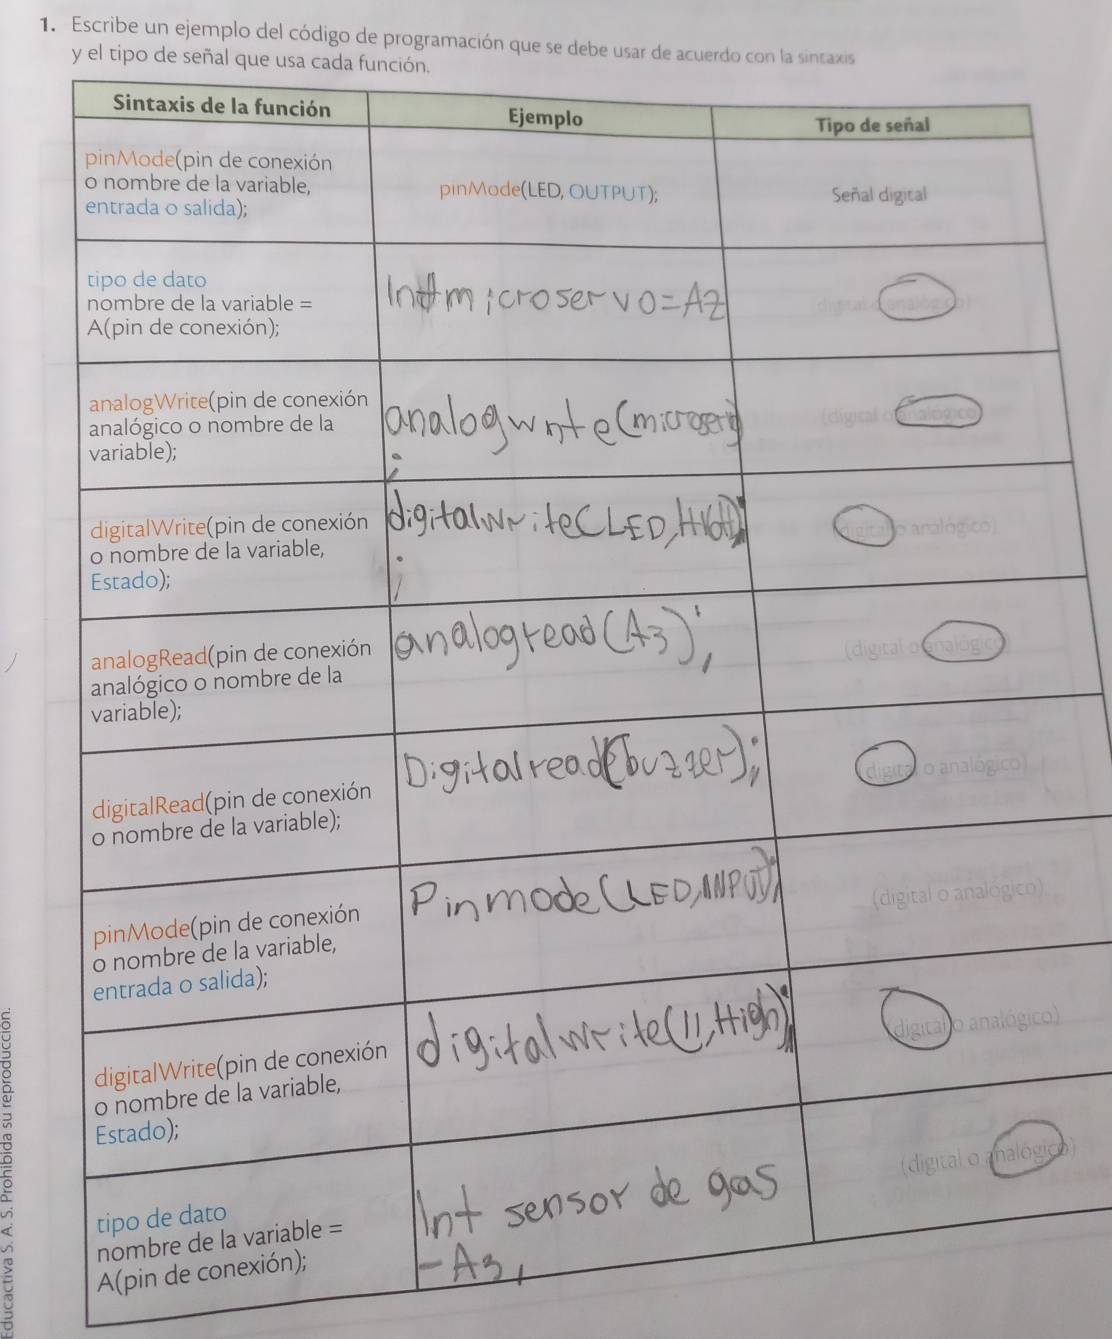 1. Escribe un ejemplo del código de programación que se debe usar de acuerdo con la sintaxis
y el tipo de señal que usa cada función.
Sintaxis de la función Ejemplo Tipo de señal
pinMode(pin de conexión
o nombre de la variable,
entrada o salida);
pinMode(LED, OUTPUT);
Señal digital
tipo de dato
nombre de la variable =
A(pin de conexión);
Int microservo=A2
(digital o analógico)
analogWrite(pin de conexión
analógico o nombre de la
variable);
analogwrite(microserv
;
(digital o analógico)
digitalWrite(pin de conexión
o nombre de la variable,
Estado);
digitalwrite(LED, HIGH)
;
(digital o analógico)
analogRead(pin de conexión
analógico o nombre de la
variable);
analogread(A3);
(digital o analógico)
digitalRead(pin de conexión
o nombre de la variable);
Digitalread(buzzer);
(digital o analógico)
pinMode(pin de conexión
o nombre de la variable,
entrada o salida);
Pinmode(LED, INPUT);
(digital o analógico)
digitalWrite(pin de conexión
o nombre de la variable,
Estado);
digitalwrite(11, High);
(digital o analógico)
tipo de dato
nombre de la variable =
A(pin de conexión);
Int sensor de gas
-A3,
(digital o analógico)
Educactiva S. A. S. Prohibida su reproducción.